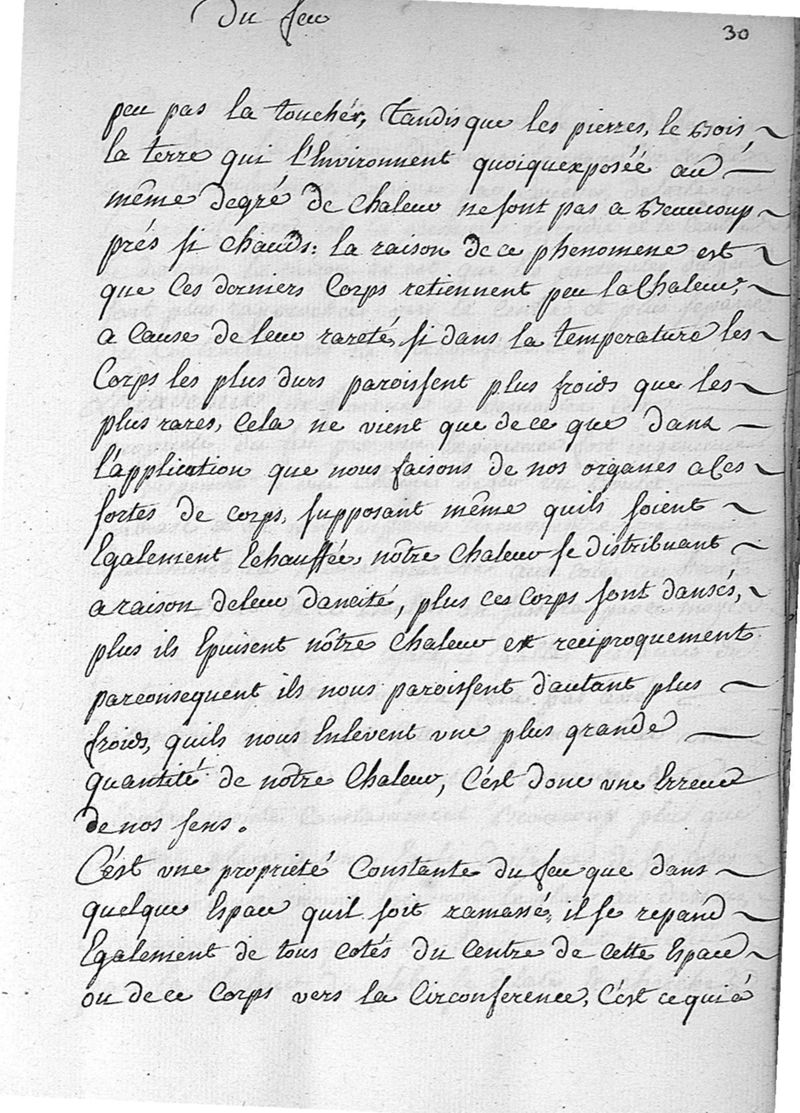 Du feu
30
peu pas la touchér, tandis que les pierres, le Bois
la terre qui l'Environnent quoiquexposéé au
même degré de chaleur ne sont pas a Beaucoup
prés si chauds: la raison de ce phenomene est
que Ces derniers Corps retiennent peu la Chaleur,
a Cause de leur rareté, si dans la température les
Corps les plus durs paroissent plus froids que les
plus rares, Cela ne vient que de ce que dans
l'application que nous faisons de nos organes a Ces
sortes de corps, supposant même quils soient
Egalement Echauffée, nôtre Chaleur se distribuant
a raison deleur dancité, plus ces Corps sont dansés,
plus ils Epuisent nôtre Chaleur et reciproquement
parconsequent ils nous paroissent d'autant plus
froids, quils nous Enlévent une plus grande
quantité de nôtre Chaleur, C'ést donc une Erreur
de nos sens.
C'ést une propriété Constante du feu que dans
quelque Espace quil soit ramassé, il se repand
Egalement de tous cotés du Centre de cette Espace
ou de ce Corps vers la Circonference, C'ést ce qui a